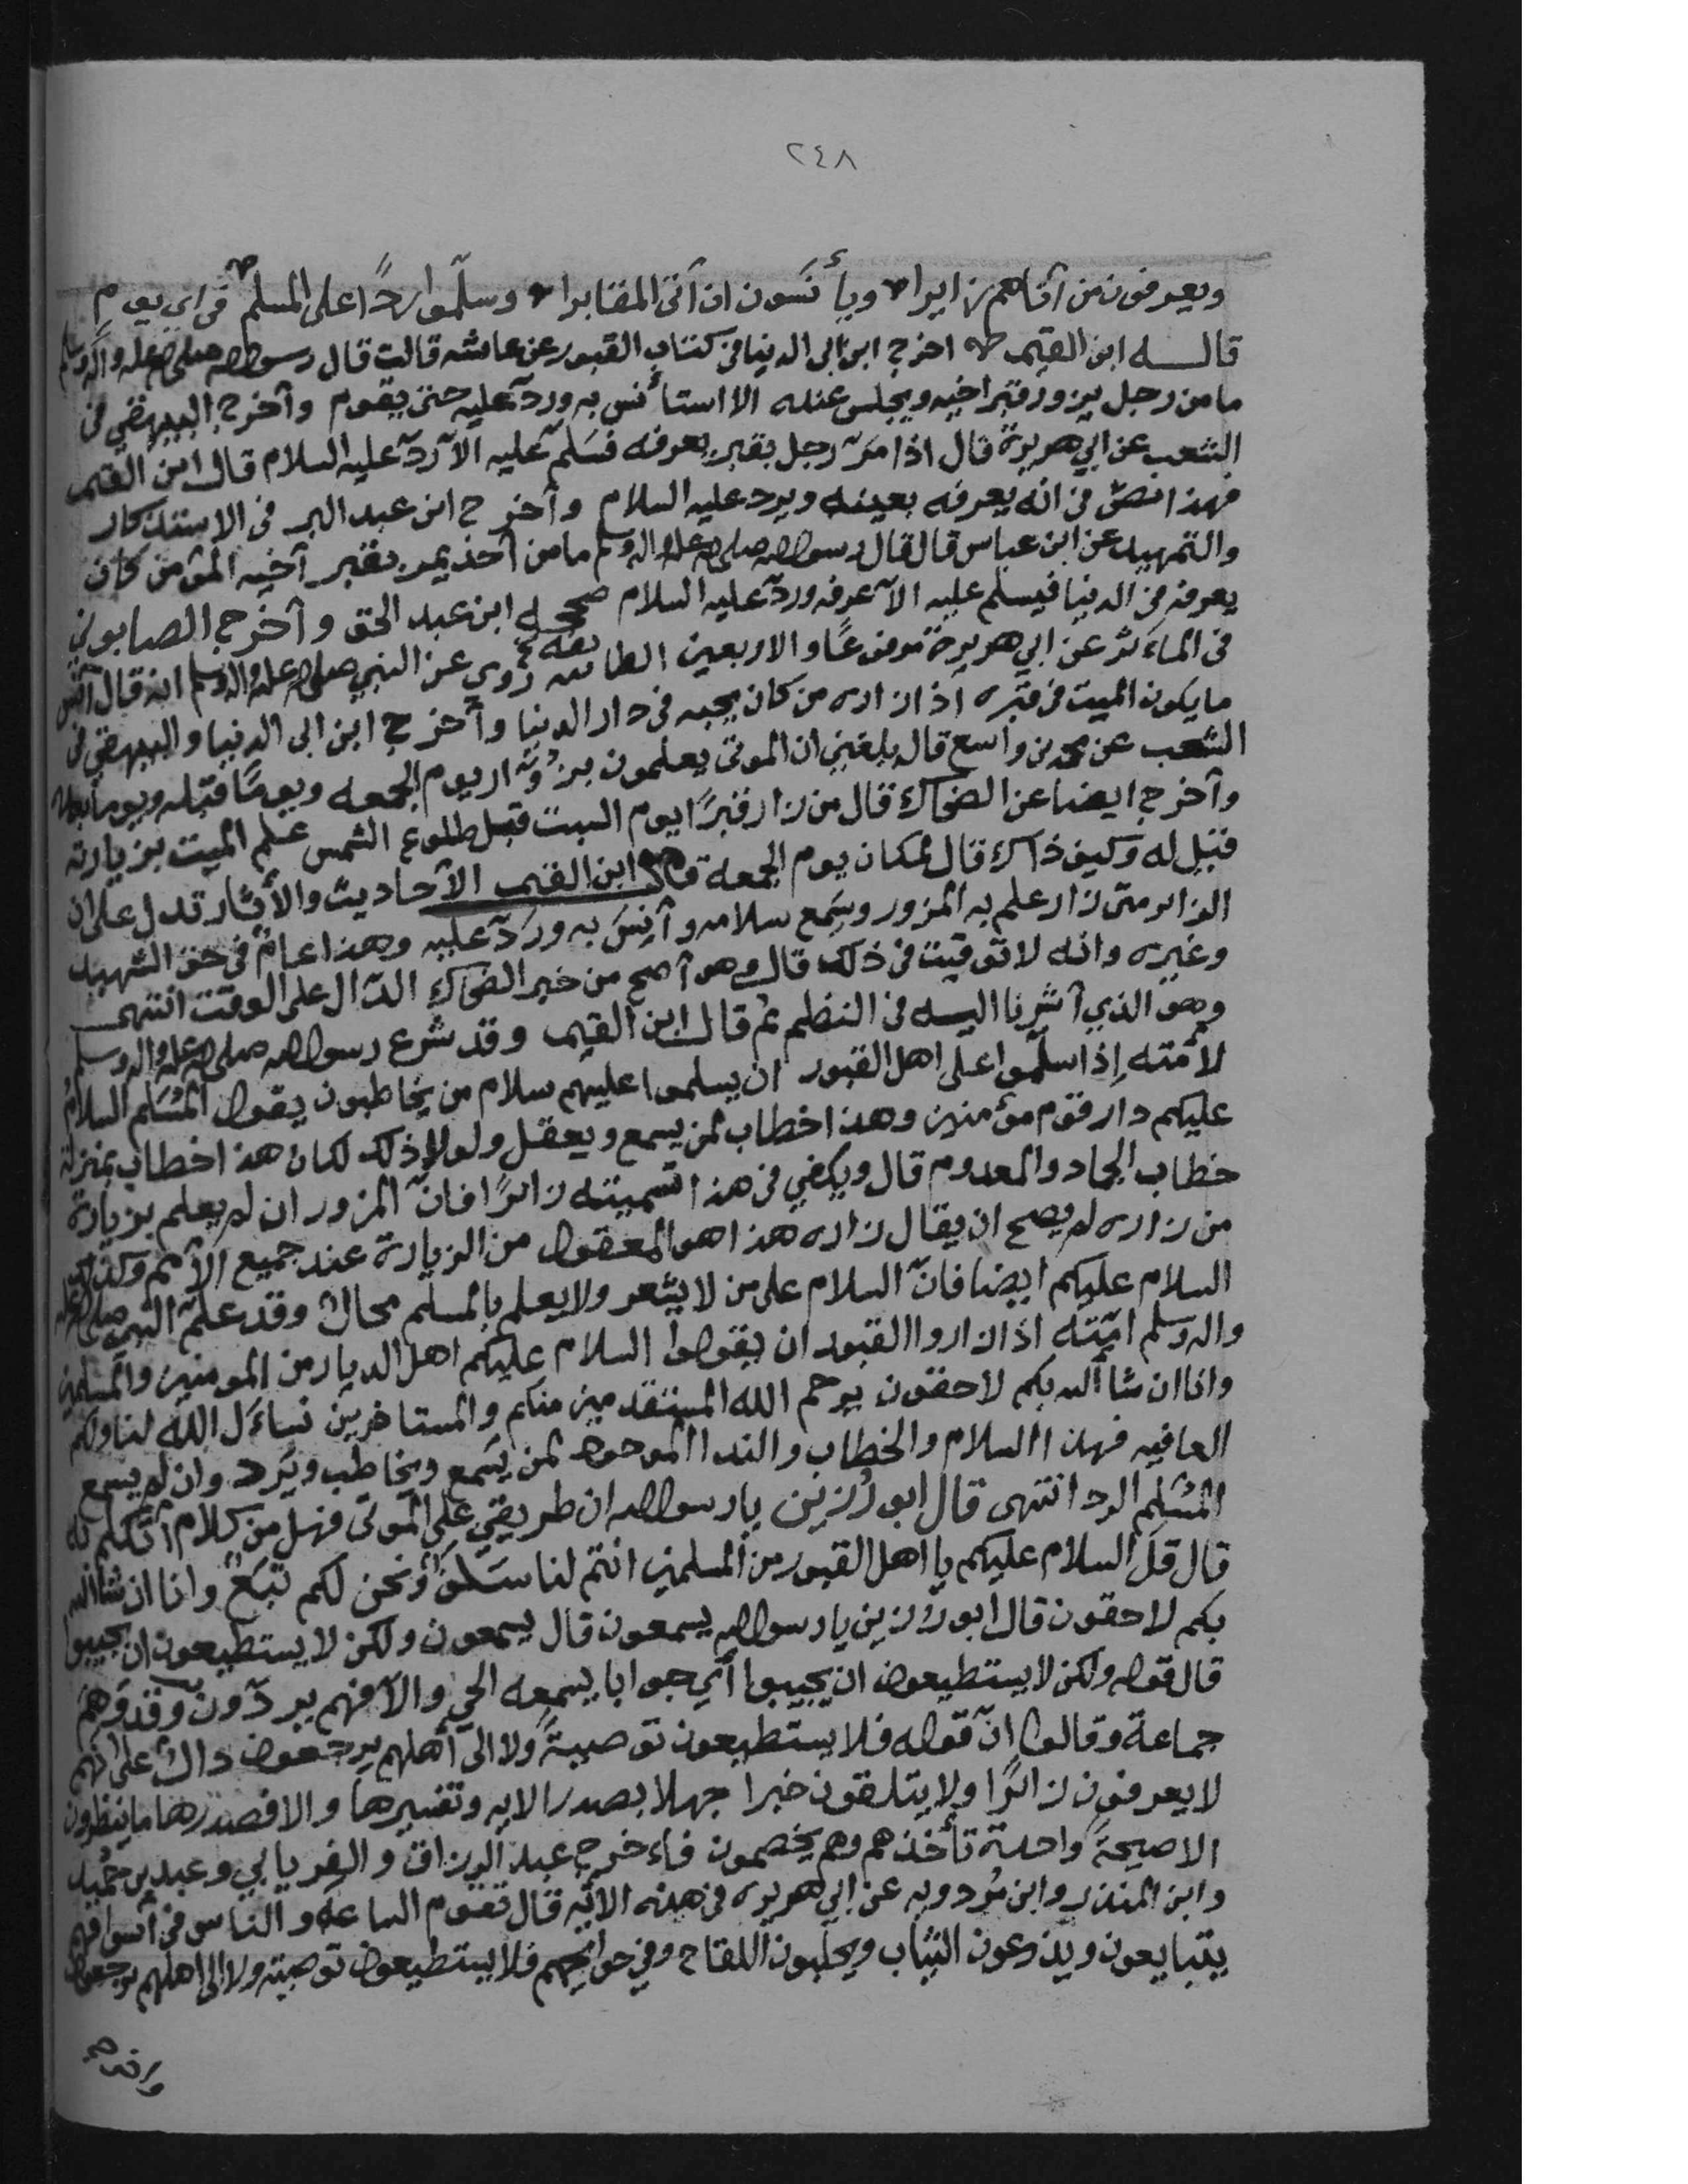 ٢٤٨
ويعرفون من آتاهم زايرا ويأنسون ان آتى المقابرا وسلّموا ردًّا على المسلم في اي يوم
قاله ابن القيم اخرج ابن ابي الدنيا في كتاب القبور عن عائشه قالت قال رسول الله صلى الله عليه واله وسلم
ما من رجل يزور قبر اخيه ويجلس عنده الا استأنس به وردّ عليه حتى يقوم وآخرج البيهقي في
الشعب عن ابي هريرة قال اذا مرّ رجل بقبر يعرفه فسَلّم عليه الآ ردّ عليه السلام قال ابن القيم
فهذا نصّ في انه يعرفه بعينه ويرد عليه السلام وآخرج ابن عبد البر في الاستذكار
والتمهيد عن ابن عباس قال قال رسول الله صلى الله عليه واله وسلم ما من آحد يمر بقبر آخيه المؤمن كان
يعرفه في الدنيا فيسلم عليه الآ عرفه وردّ عليه السلام صححه ابن عبد الحق وآخرج الصابوني
في المائتين عن ابي هريرة مرفوعًا والاربعين الطائيه رُوي عن النبي صلى الله عليه واله وسلم انه قال آنس
ما يكون الميت في قبره آذا زاره من كان يحبه في دار الدنيا وآخرج ابن ابي الدنيا والبيهقي في
الشعب عن محمد بن واسع قال بلغني ان الموتى يعلمون بزُوّار يوم الجمعه ويومًا قبله ويوما بعده
وآخرج ايضا عن الضحاك قال من زار قبرًا يوم السبت قبل طلوع الشمس علم الميت بزيارته
فقيل له وكيف ذاك قال لمكان يوم الجمعة قال ابن القيم الآحاديث والأثار تدل على ان
الزاير متى زار علم به المزور وسَمع سلامه وآنِسَ به وردّ عليه وهذا عامٌ في حق الشهيد
وغيره وانه لا توقيت في ذلك قال وهو آصح من خبر الضحاك الدّال على الوقت انتهى
وهو الذي آشرنا اليه في النظم ثم قال ابن القيم وقد شرع رسول الله صلى الله عليه واله وسلم
لأمته إذا سلّموا على اهل القبور ان يسلموا عليهم سلام من يخاطبون يقول المُسَلم السلامُ
عليكم دار قوم مؤمنين وهذا خطاب لمن يسمع ويعقل ولولا ذلك لكان هذا خطاب بمنزلة
خطاب الجماد والمعدوم قال ويكفي في هذا تسميته زائرًا فانّ المزور ان لم يعلم بزيارة
من زاره لم يصح ان يقال زاره هذا هو المعقول من الزيارة عند جميع الأمم وكذلك
السلام عليكم ايضا فانّ السلام على من لا يشعر ولا يعلم بالمسلم محال وقد علّم النبي صلى الله عليه
واله وسلم امّته اذا زاروا القبور ان يقولوا السلام عليكم اهل الديار من المومنين والمسلمين
وانا ان شا الله بكم لاحقون يرحم الله المستقدمين منكم والمستاخرين نساءَل الله لنا ولكم
العافيه فهذا السلام والخطاب والندا الموجود لمن يسمع ويخاطب ويَرد وان لم يسمع
المُسَلم الرد انتهى قال ابو رُزين يا رسول الله ان طريقي على الموتى فهل من كلام آتكلم به
قال قل السلام عليكم يا اهل القبور من المسلمين انتم لنا سَلفٌ ونحن لكم تبَعٌ وانا ان شا الله
بكم لاحقون قال ابو رُزين يا رسول الله يسمعون قال يسمعون ولكن لا يستطيعون ان يجيبوا
قال قوله ولكن لا يستطيعون ان يجيبوا آي جوابا يسمعه الحي والآ فهم يردّون وقد وَهِمَ
جماعة وقالوا انّ قوله فلا يستطيعون توصيةً ولا الى آهلهم يرجعون دالٌ على انهم
لا يعرفون زائرًا ولا يتلقون خبرا جهلا بصدر الايه وتفسيرها والا فصدرها ما ينظرون
الا صيحةً واحدة تأخذهم وهم يخصمون فاءخرج عبد الرزاق والفريابي وعبد بن حُميد
وابن المنذر وابن مردويه عن ابي هريره في هذه الآيه قال تقوم الساعه والناس في آسواقهم
يتبايعون ويذرعون الثياب ويحلبون اللقاح وفي حوائجهم فلا يستطيعون توصيته ولا الى اهلهم يرجعون